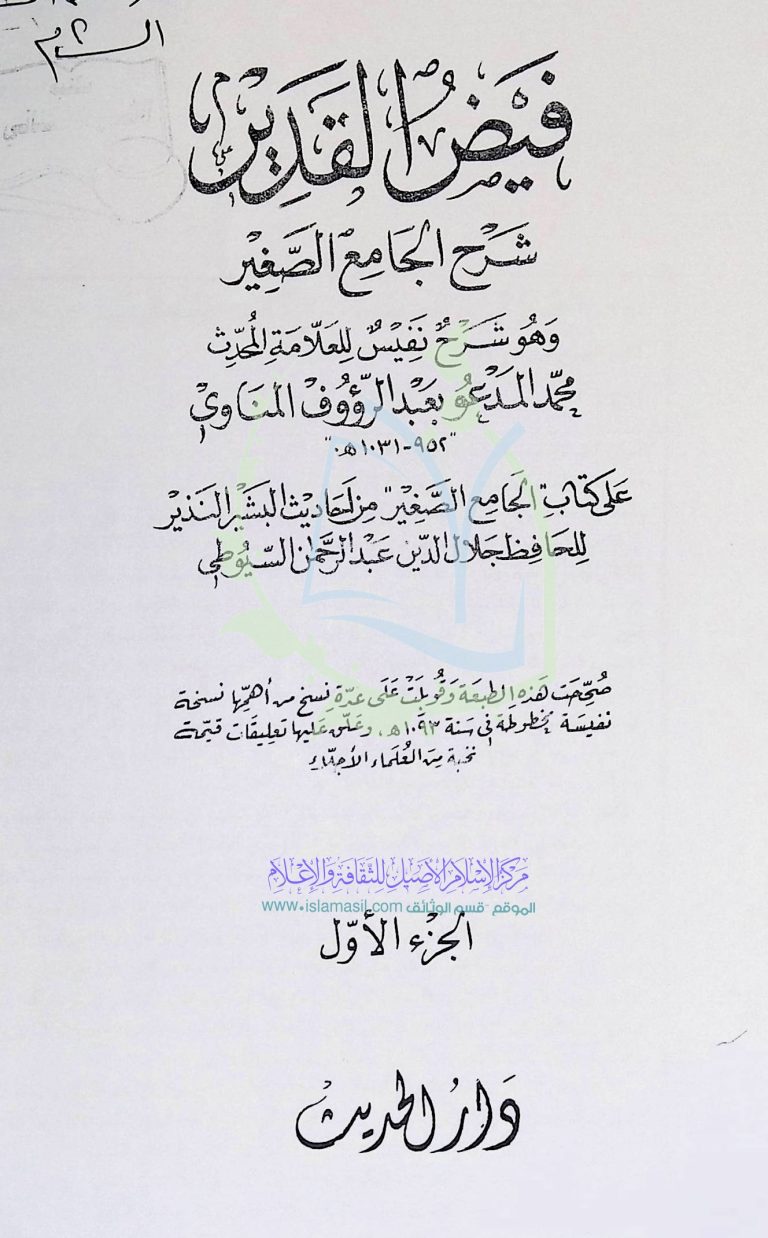 فَيَضُ القَدِير
شَرْح الجَامِع الصَّغِير
وَهُو شَرْحٌ نَفِيسٌ لِلعَلّامَةِ المُحَدِّث
محمّد المَدعُو بعَبد الرّؤوف المنَاوي
"٩٥٢-١٠٣١ه‍."
عَلى كتابِ "الجَامِع الصَّغِير" مِن أحَاديث البَشِير النَذير
لِلحَافِظ جَلال الدّين عَبد الرَّحمٰن السّيُوطي
صُحِّحَت هَذِه الطبعَة وَقُوبلَتْ عَلَى عدّة نسخ من أهمّها نسخة
نفيسَة مخطوطة في سَنة ١٠٩٣ه‍، وعَلّق عَليها تعليقَات قيّمة
نخبة مِنَ العُلمَاء الأجلّاء
مركز الإسلام الأصيل للثقافة والإعلام
الموقع - قسم الوثائق www.islamasil.com
الجزء الأوّل
دَارُ الحَديث